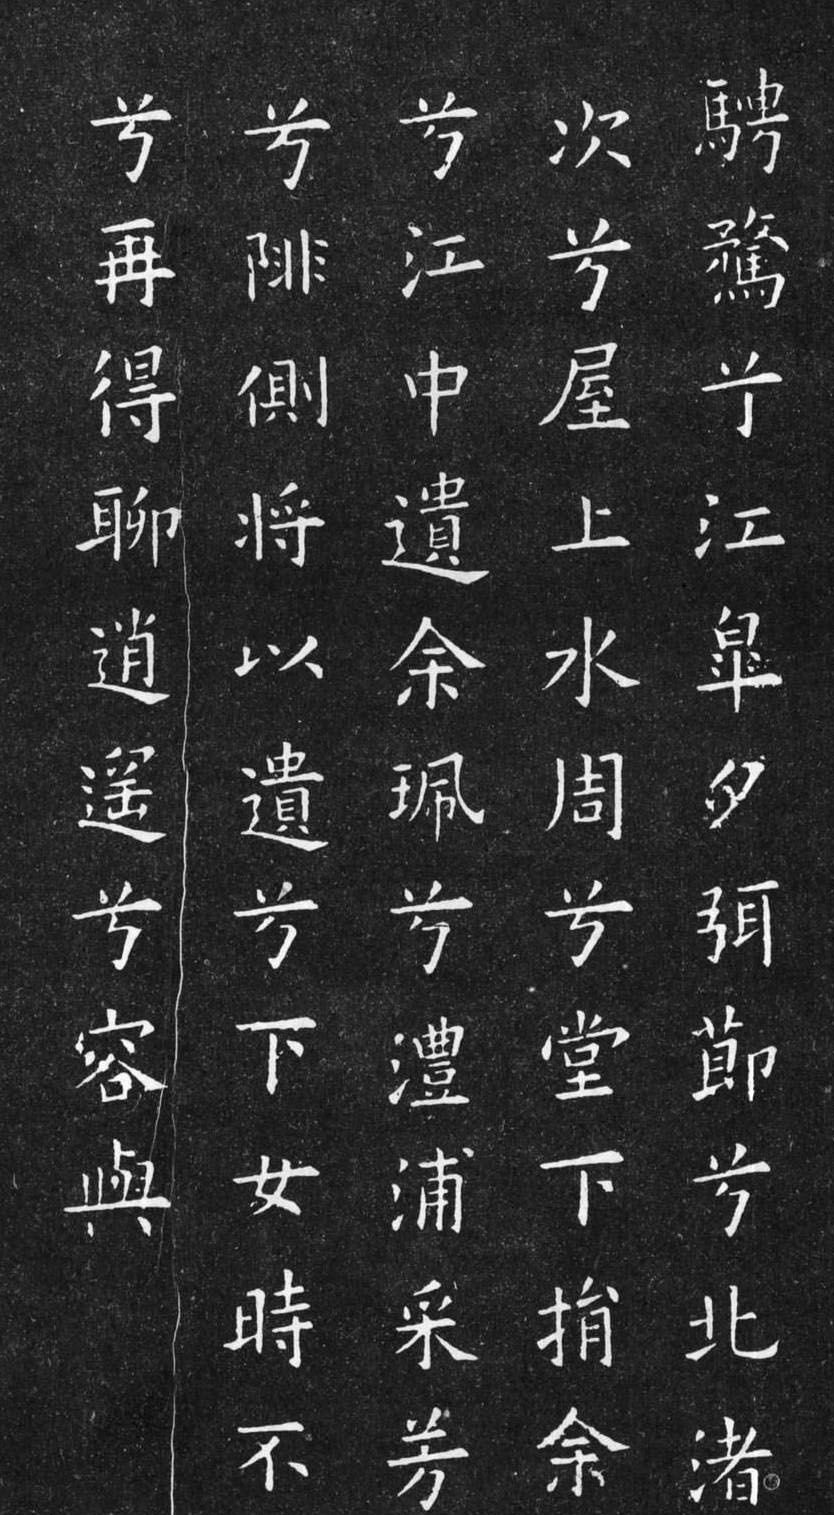 騁騖兮江皐夕弭莭兮北渚
次兮屋上水周兮堂下捐余
兮江中遺余珮兮澧浦采芳
兮陫側将以遺兮下女時不
兮再得聊逍遥兮容與